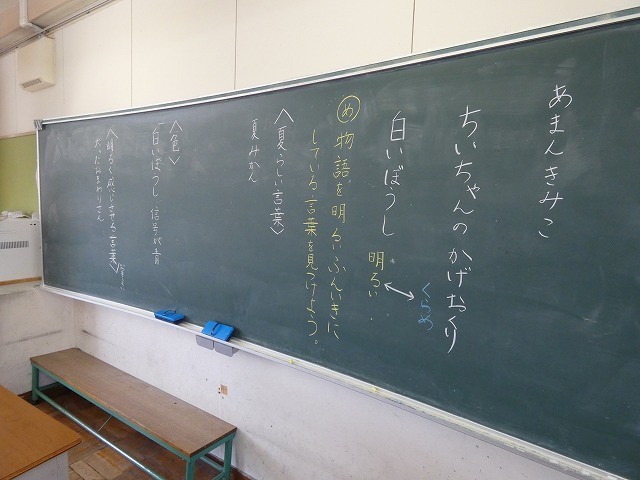 あまんきみこ
ちいちゃんのかげおくり
くらめ
白いぼうし 明るい
め 物語を明るいふんいきに
している言葉を見つけよう。
〈夏らしい言葉〉
夏みかん
〈色〉
白いぼうし、信号が青
〈明るく感じさせる言葉〉